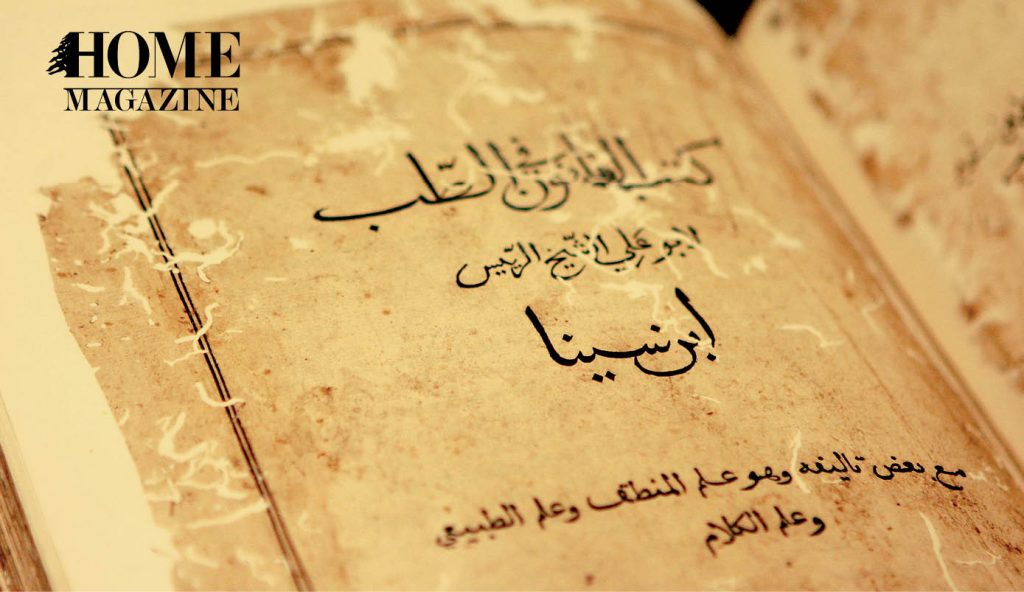 HOME
MAGAZINE
كتاب القانون في الطب
لابو علي الشيخ الرئيس
ابن سينا
مع بعض تاليفه وهو علم المنطق وعلم الطبيعي
وعلم الكلام